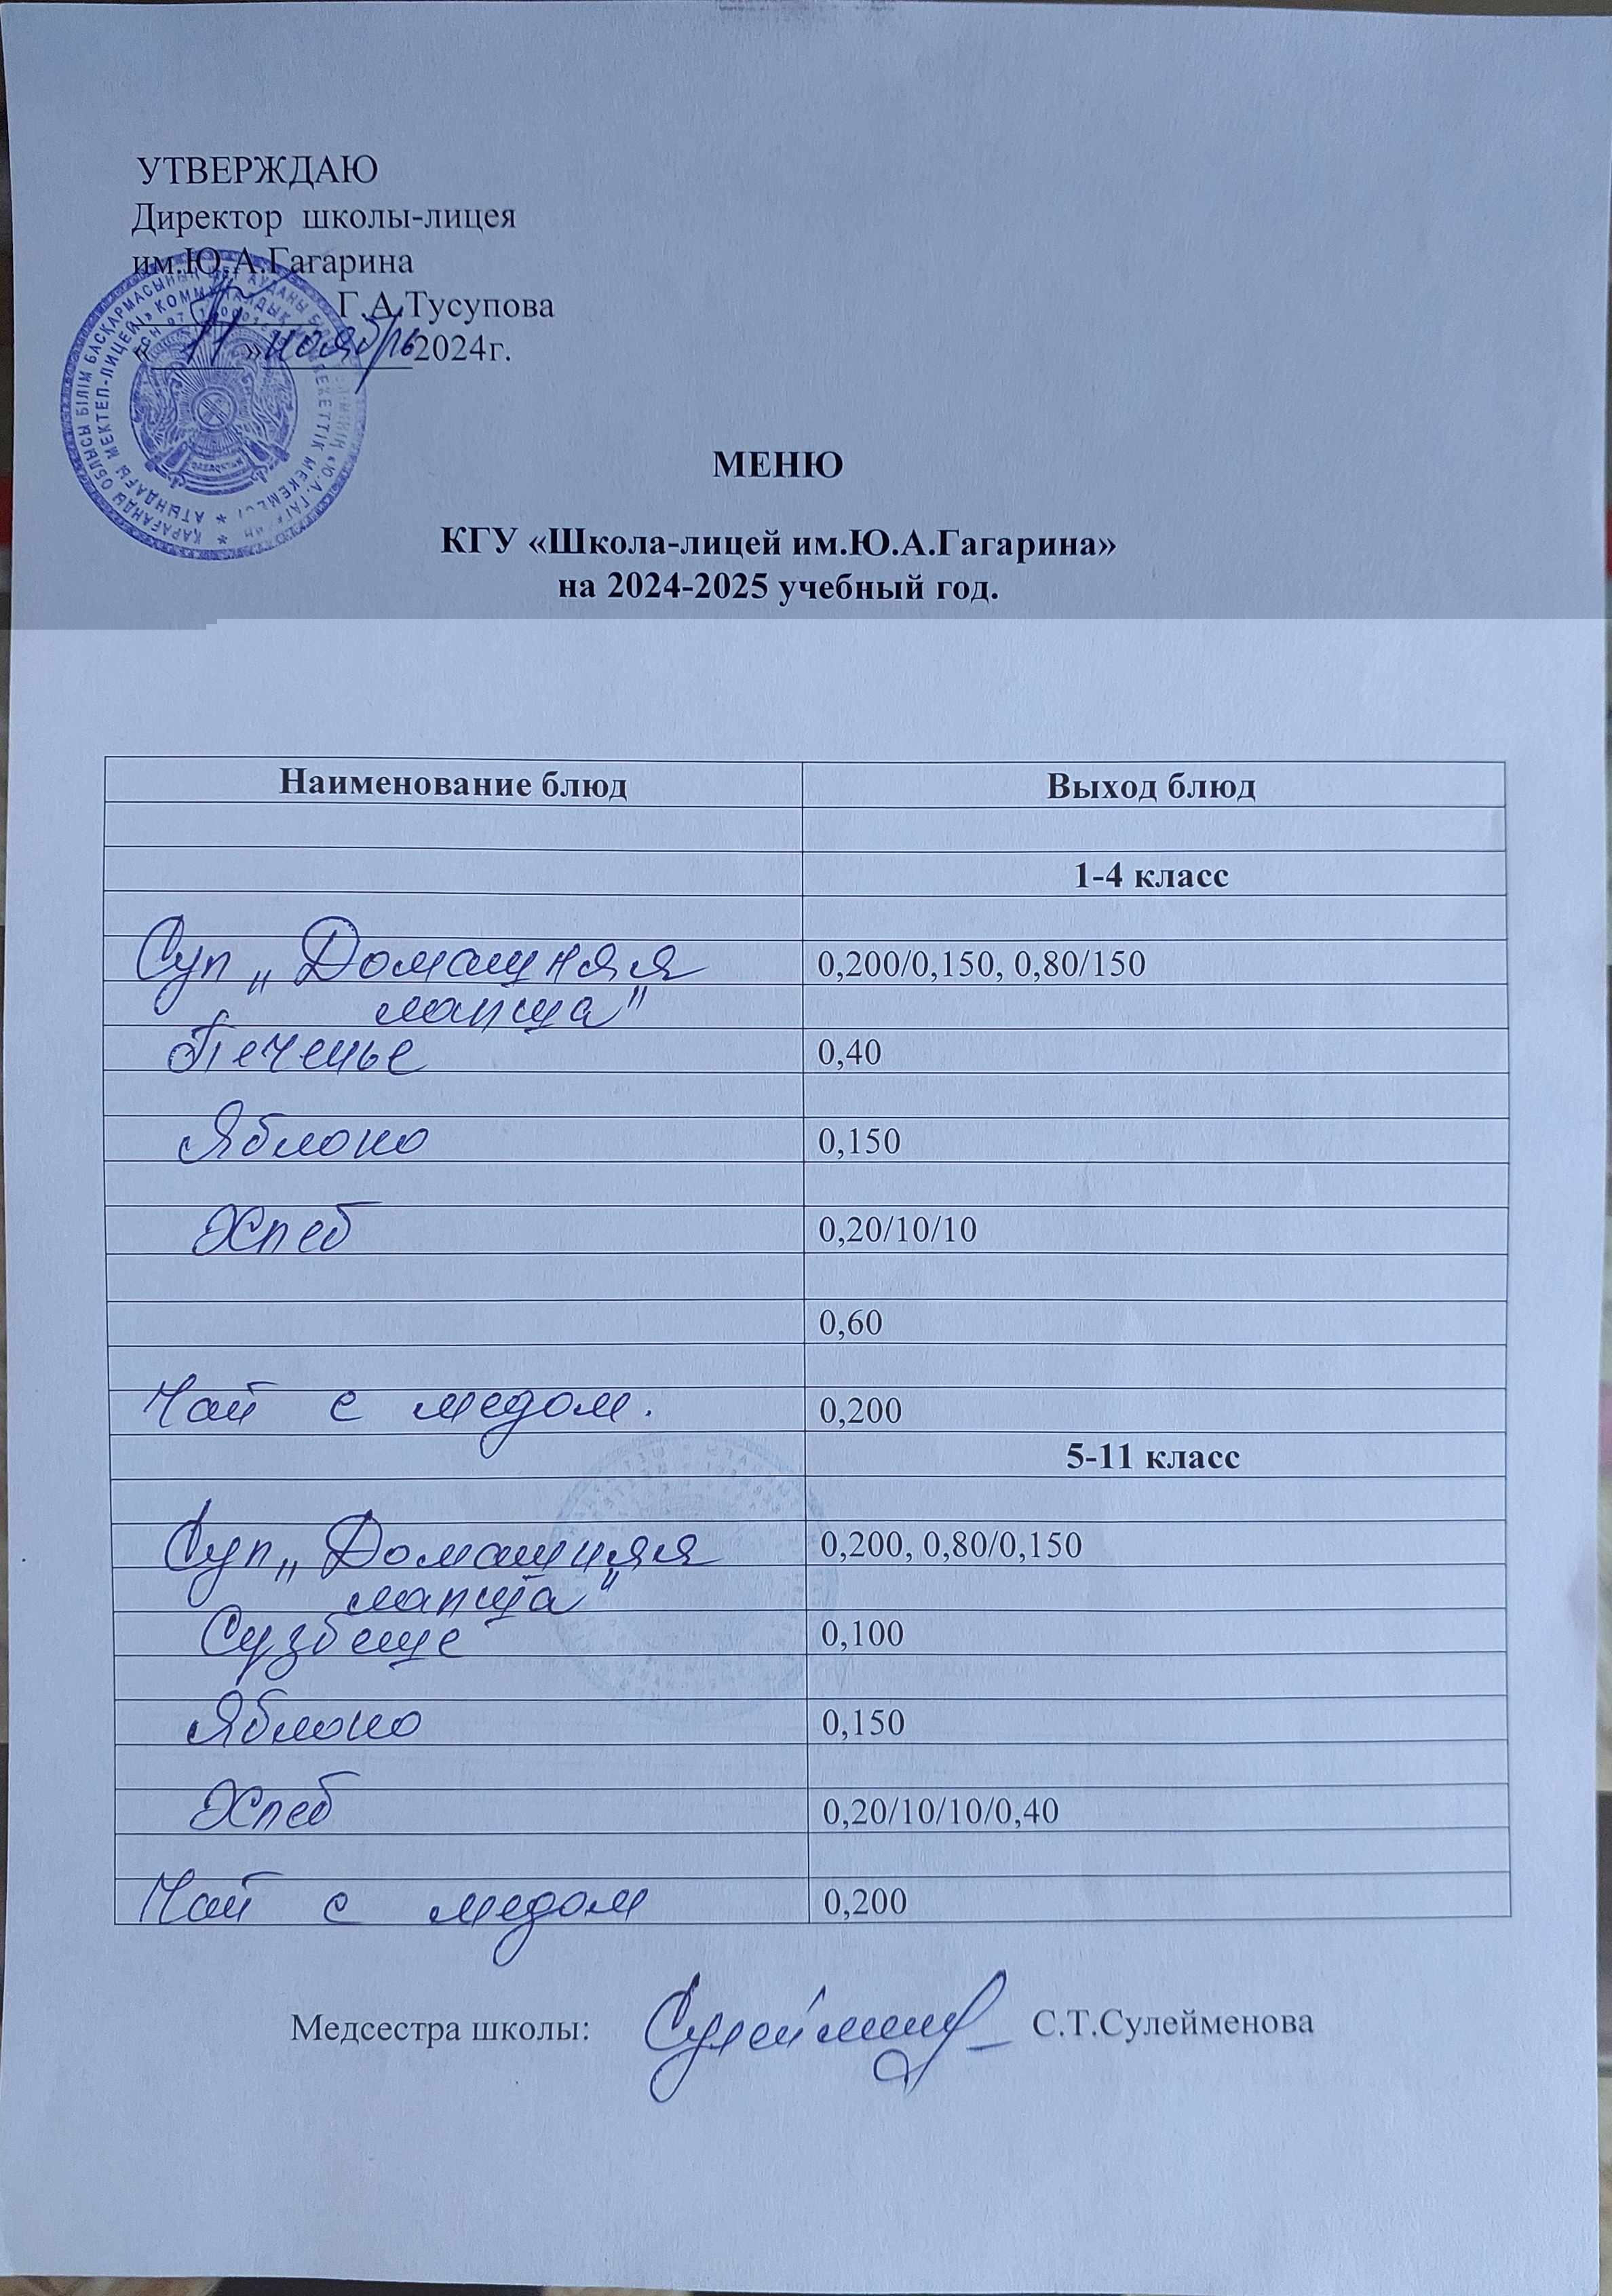 УТВЕРЖДАЮ
Директор школы-лицея
им.Ю.А.Гагарина
Г.А.Тусупова
« 11 » ноябрь 2024г.
МЕНЮ
КГУ «Школа-лицей им.Ю.А.Гагарина»
на 2024-2025 учебный год.
Наименование блюд Выход блюд
1-4 класс
Суп „Домашняя 0,200/0,150, 0,80/150
лапша"
Печенье 0,40
Яблоко 0,150
Хлеб 0,20/10/10
0,60
Чай с медом. 0,200
5-11 класс
Суп „Домашняя 0,200, 0,80/0,150
лапша"
0,100
Яблоко 0,150
Хлеб 0,20/10/10/0,40
Чай с медом 0,200
Медсестра школы: С.Т.Сулейменова